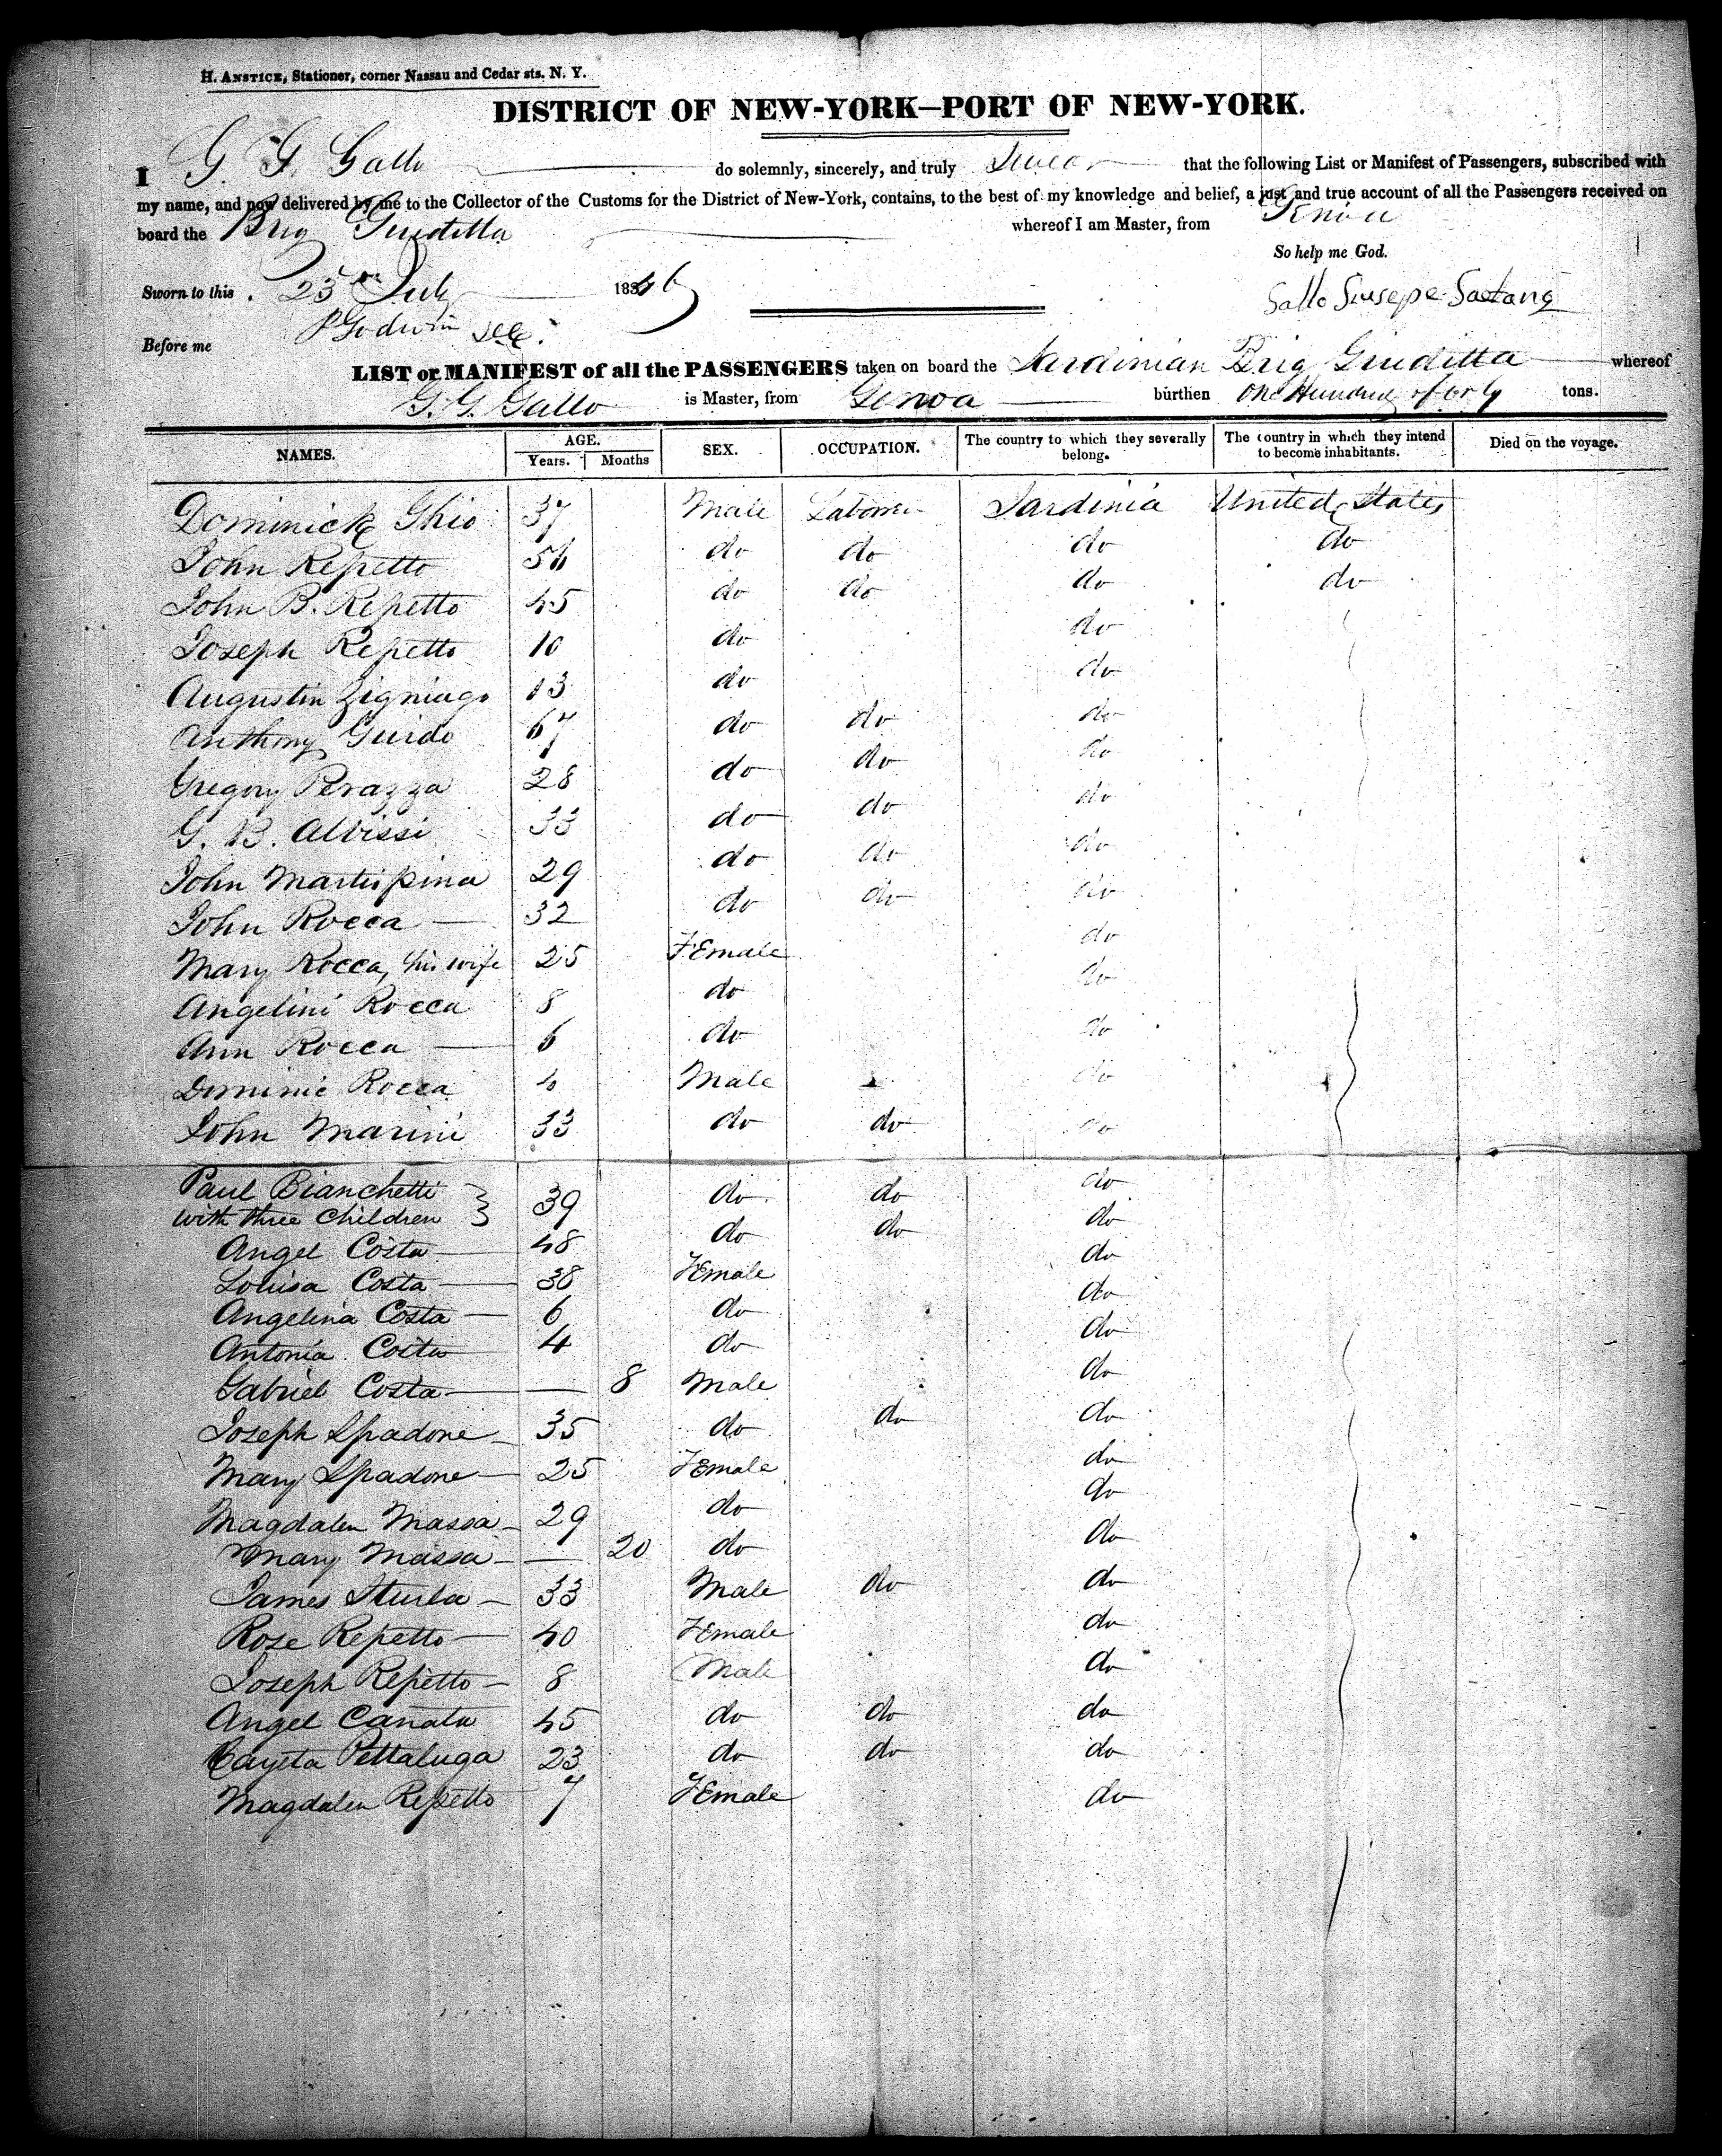 H. ANSTICE, Stationer, corner Nassau and Cedar sts. N. Y.
DISTRICT OF NEW-YORK—PORT OF NEW-YORK.
I G. G. Gallo do solemnly, sincerely, and truly Swear that the following List or Manifest of Passengers, subscribed with
my name, and now delivered by me to the Collector of the Customs for the District of New-York, contains, to the best of my knowledge and belief, a just and true account of all the Passengers received on
board the Brig Giuditta whereof I am Master, from Genoa
So help me God.
Sworn to this 23 July 1846
Gallo Giusepe Gaetano
Before me PGodwin
LIST or MANIFEST of all the PASSENGERS taken on board the Sardinian Brig Giuditta whereof
G. G. Gallo is Master, from Genoa burthen One Hundred & forty tons.
NAMES. AGE. Years. Months SEX. OCCUPATION. The country to which they severally belong. The country in which they intend to become inhabitants. Died on the voyage.
Dominick Ghio 37 Male Laborer Sardinia United States
John Repetto 54 do do do do
John B. Repetto 45 do do do do
Joseph Repetto 10 do do
Augustin Zigniago 13 do do
Anthony Guido 67 do do do
Gregory Perazza 28 do do do
G. B. Albissi 33 do do do
John Martispina 29 do do do
John Rocca 32 do do do
Mary Rocca, his wife 25 Female do
Angelini Rocca 8 do do
Ann Rocca 6 do do
Dominic Rocca 4 Male do
John Marini 33 do do do
Paul Bianchetti
with three children } 39 do do do
Angel Costa 48 do do do
Louisa Costa 38 Female do
Angelina Costa 6 do do
Antonia Costa 4 do do
Gabriel Costa — 8 Male do
Joseph Spadone 35 do do do
Mary Spadone 25 Female do
Magdalen Massa 29 do do
Mary Massa — 20 do do
James Sturla 33 Male do do
Rose Repetto 40 Female do
Joseph Repetto 8 Male do
Angel Canata 45 do do do
Cayeta Pettaluga 23 do do do
Magdalen Repetto 7 Female do